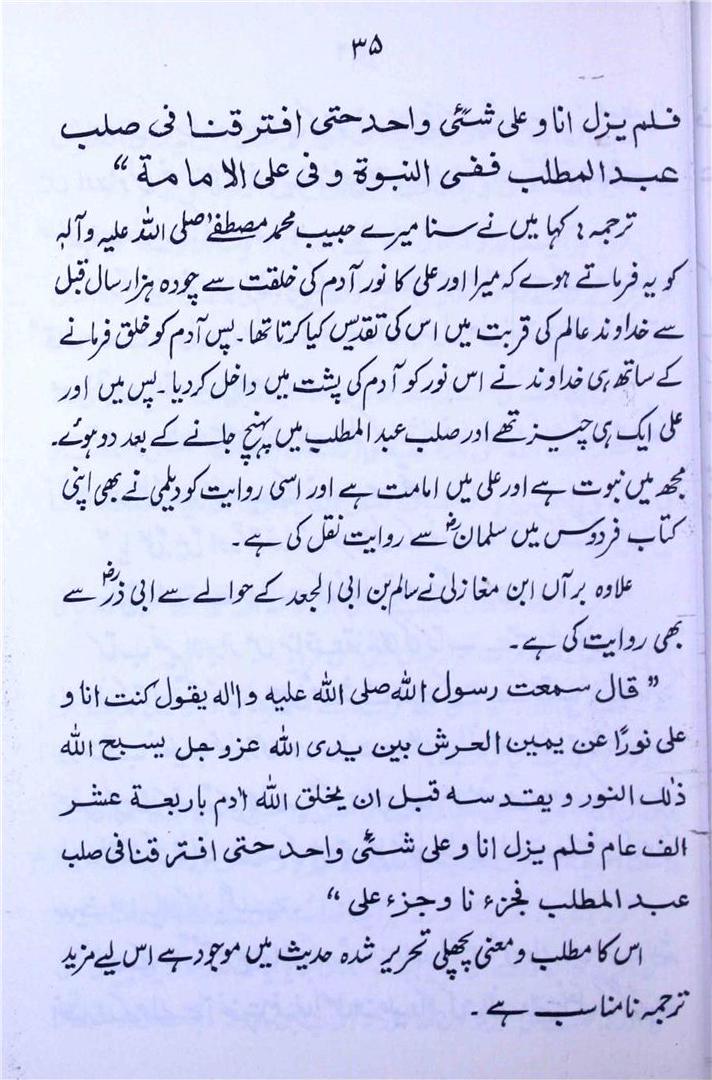 ۳۵
فلم یزل انا و علی شئی واحد حتی افترقنا فی صلب
عبد المطلب ففی النبوة و فی علی الامامة “
ترجمہ : کہا میں نے سنا میرے حبیب محمد مصطفےٰ صلی اللہ علیہ و آلہٖ
کو یہ فرماتے ہوے کہ میرا اور علی کا نور آدم کی خلقت سے چودہ ہزار سال قبل
سے خداوند عالم کی قربت میں اس کی تقدیس کیا کرتا تھا۔ پس آدم کو خلق فرمانے
کے ساتھ ہی خداوند نے اس نور کو آدم کی پشت میں داخل کردیا۔ پس میں اور
علی ایک ہی چیز تھے اور صلب عبد المطلب میں پہنچ جانے کے بعد دو ہوئے۔
مجھ میں نبوت ہے اور علی میں امامت ہے اور اسی روایت کو دیلمی نے بھی اپنی
کتاب فردوس میں سلمانؓ سے روایت نقل کی ہے۔
علاوہ برآں ابن مغازلی نے سالم بن ابی الجعد کے حوالے سے ابی ذرؓ سے
بھی روایت کی ہے۔
” قال سمعت رسول اللہ صلی اللہ علیہ و اٰلہ یقول کنت انا و
علی نورًا عن یمین الحرش بین یدی اللہ عزوجل یسبح اللہ
ذٰلک النور و یقدسہ قبل ان یخلق اللہ اٰدم باربعة عشر
الف عام فلم یزل انا و علی شئی واحد حتی افترقنا فی صلب
عبد المطلب فجزء نا وجزء علی “
اس کا مطلب و معنی پچھلی تحریر شدہ حدیث میں موجود ہے اس لیے مزید
ترجمہ نامناسب ہے۔